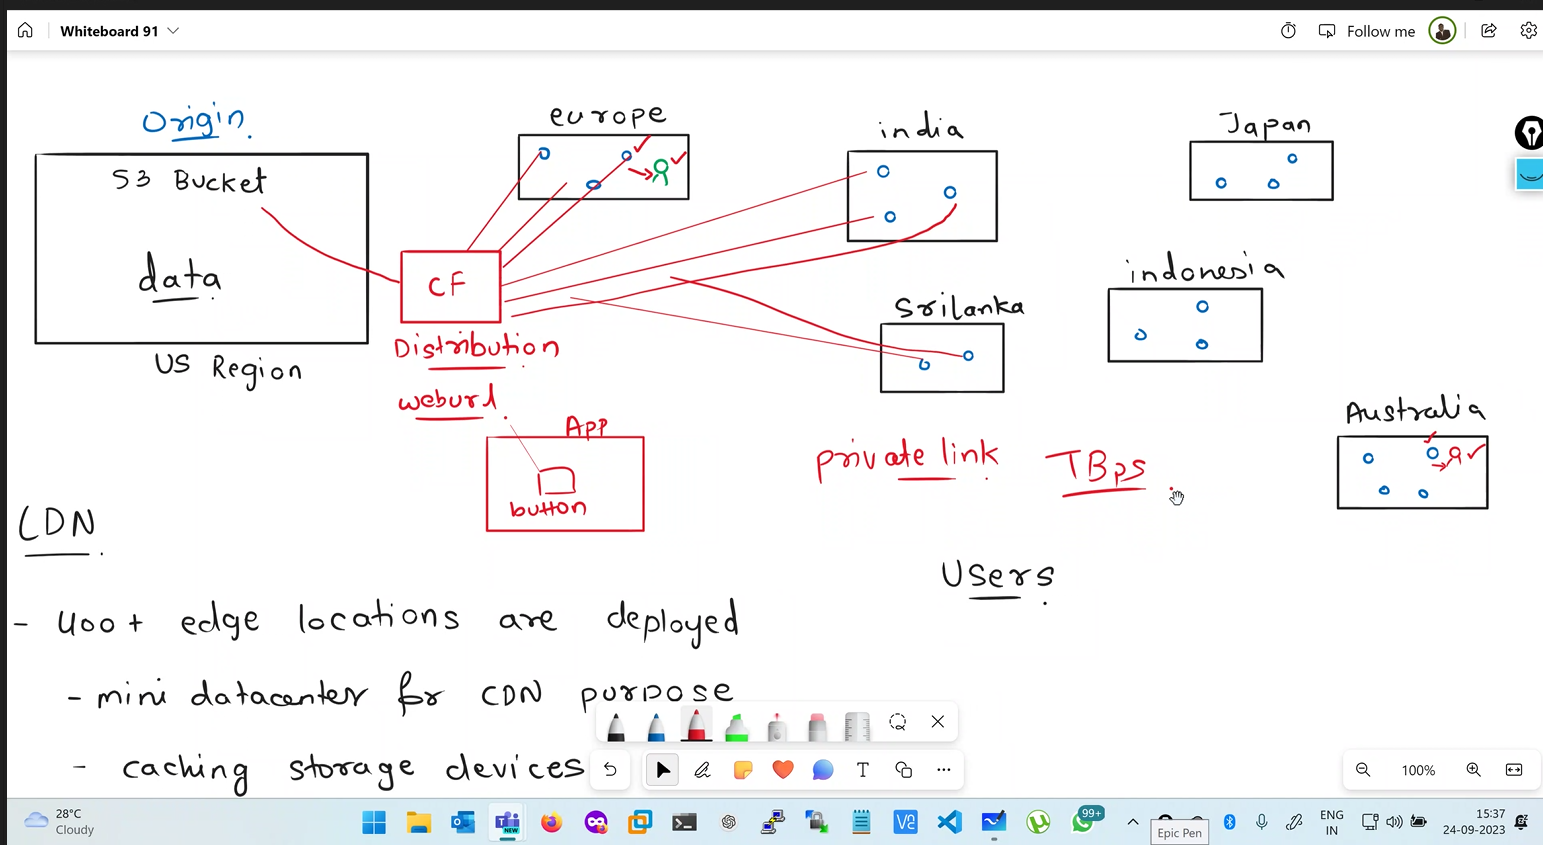 Whiteboard 91
Follow me
Origin
S3 Bucket
data
US Region
europe
india
Japan
CF
Distribution
weburl
Srilanka
indonesia
App
button
private link
TBps
Australia
CDN
Users
- 400+ edge locations are deployed
- mini datacenter for CDN purpose
- caching storage devices
T
100%
28°C
Cloudy
NEW
99+
ENG
IN
15:37
24-09-2023
Epic Pen